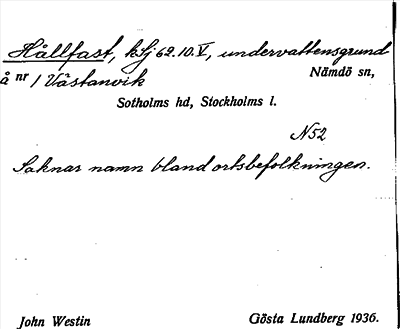 Hållfast, kSj 62.10.V, undervattensgrund
å nr 1 Västanvik Nämdö sn,
Sotholms hd, Stockholms l.
N52
Saknar namn bland ortsbefolkningen.
John Westin Gösta Lundberg 1936.